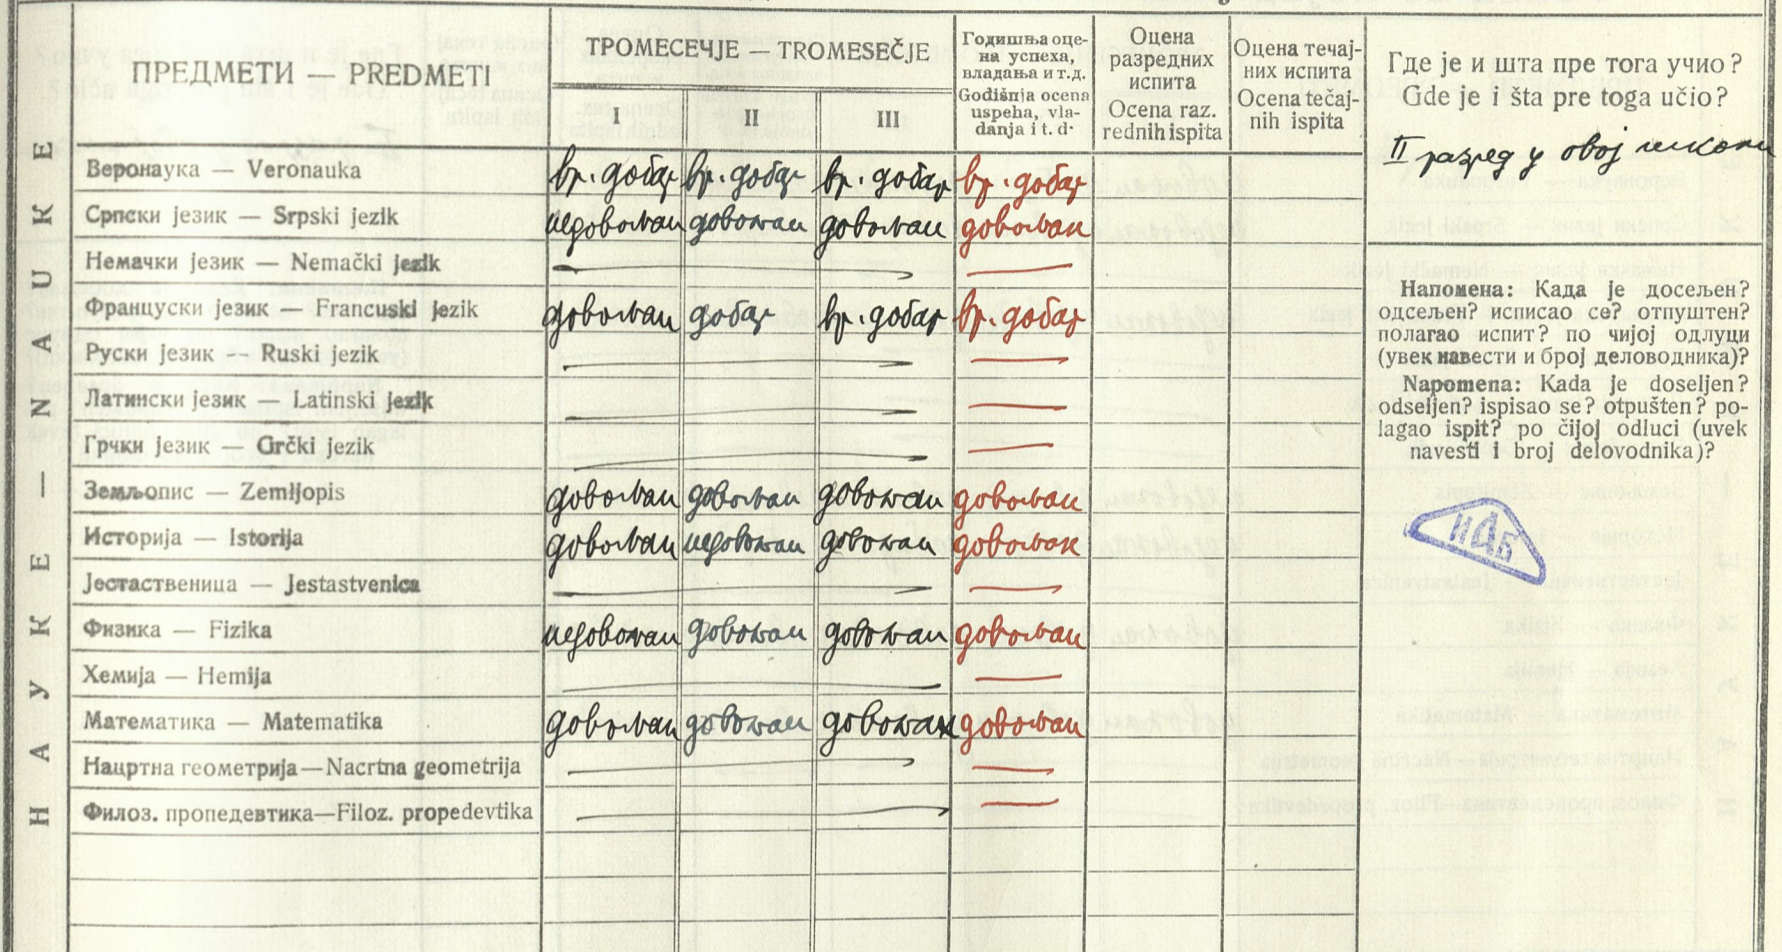 НАУКЕ — NAUKE
ПРЕДМЕТИ — PREDMETI
ТРОМЕСЕЧЈЕ — TROMESEČJE
I II III
Годишња оце-
на успеха,
владања и т.д.
Godišnja ocena
uspeha, vla-
danja i t. d.
Оцена
разредних
испита
Ocena raz.
rednih ispita
Оцена течај-
них испита
Ocena tečaj-
nih ispita
Где је и шта пре тога учио?
Gde je i šta pre toga učio?
II разред у овој школи
Веронаука — Veronauka вр. добар вр. добар вр. добар вр. добар
Српски језик — Srpski jezik недовољан довољан довољан довољан
Немачки језик — Nemački jezik
Француски језик — Francuski jezik довољан добар вр. добар вр. добар
Руски језик — Ruski jezik
Латински језик — Latinski jezik
Грчки језик — Grčki jezik
Земљопис — Zemljopis довољан довољан довољан довољан
Историја — Istorija довољан недовољан довољан довољан
Јестаственица — Jestastvenica
Физика — Fizika недовољан довољан довољан довољан
Хемија — Hemija
Математика — Matematika довољан довољан довољан довољан
Нацртна геометрија—Nacrtna geometrija
Филоз. пропедевтика—Filoz. propedevtika
Напомена: Када је досељен?
одсељен? исписао се? отпуштен?
полагао испит? по чијој одлуци
(увек навести и број деловодника)?
Napomena: Kada je doseljen?
odseljen? ispisao se? otpušten? po-
lagao ispit? po čijoj odluci (uvek
navesti i broj delovodnika)?
ИАБ